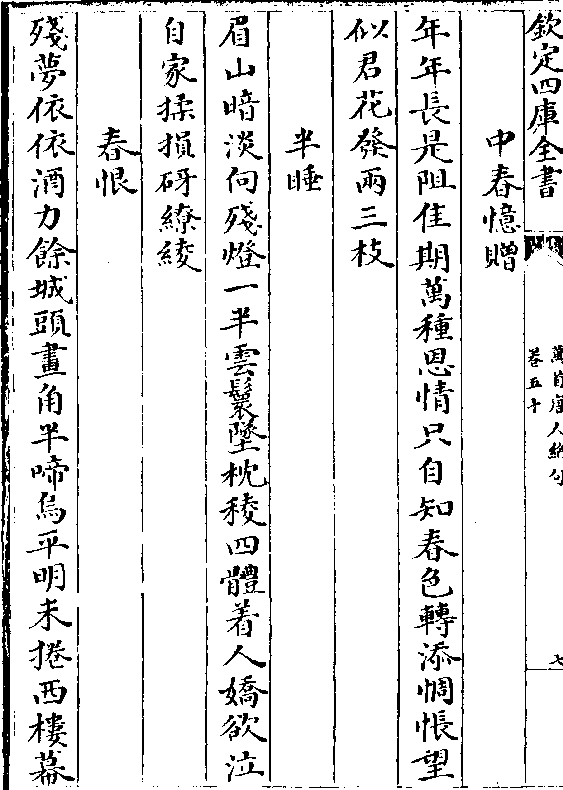 欽定四庫全書
萬首唐人絶句
卷五十
七
中春憶贈
年年長是阻佳期萬種恩情只自知春色轉添惆悵望
似君花發兩三枝
半睡
眉山暗淡向殘燈一半雲鬟墜枕稜四體着人嬌欲泣
自家揉損砑繚綾
春恨
殘夢依依酒力餘城頭畫角半啼烏平明未捲西樓幕